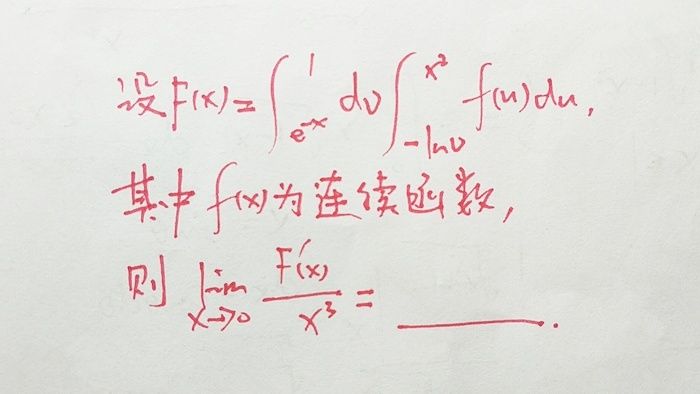 设F(x)=∫_{e^{-x}}^{1} dv∫_{-lnv}^{x²} f(u)du,
其中f(x)为连续函数,
则 lim_{x→0} F'(x)/x³ = ______.